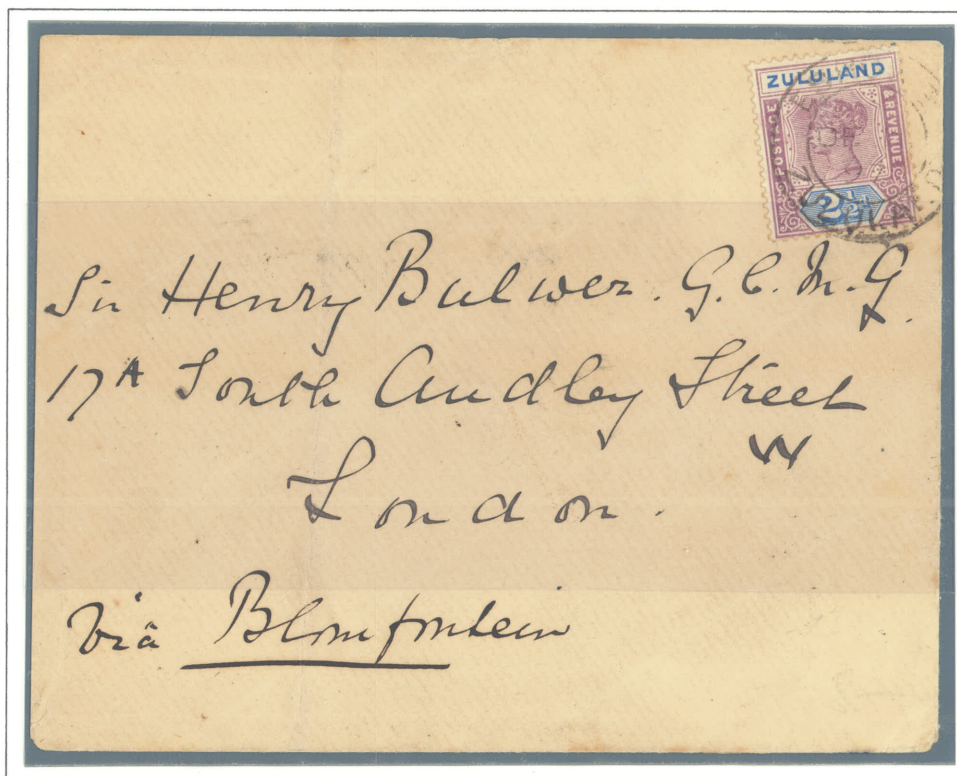 ZULULAND
POSTAGE & REVENUE
2½d
Sir Henry Bulwer. G.C.M.G.
17A South Audley Street
W
London.
Via Blomfontein